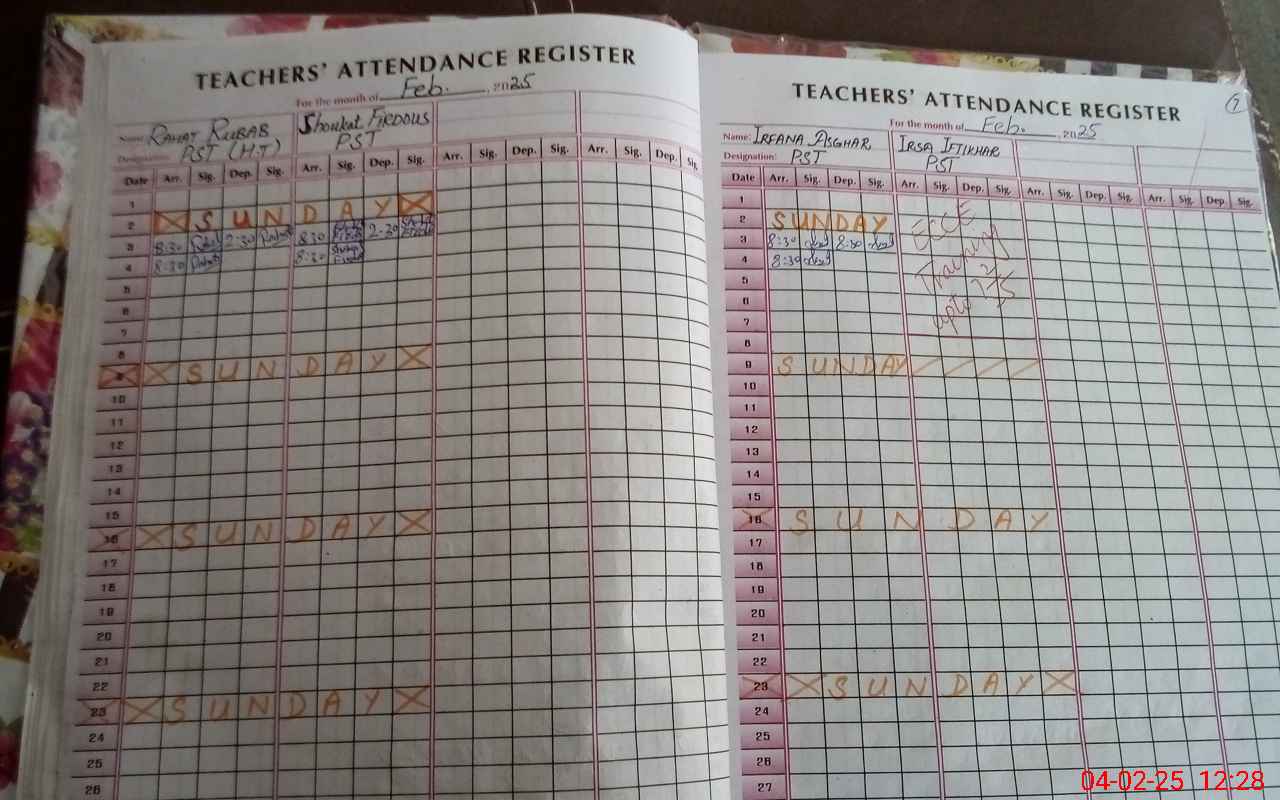 TEACHERS' ATTENDANCE REGISTER
For the month of Feb. , 2025
Name: RAHAT RUBAB Shoukat FIRDOUS
Designation: PST (H.T) PST
Date Arr. Sig. Dep. Sig. Arr. Sig. Dep. Sig. Arr. Sig. Dep. Sig. Arr. Sig. Dep. Sig.
1
2 SUNDAY
3 8:30 2-30 8:30 2-30
4 8:30 8:30
5
6
7
8
9 SUNDAY
10
11
12
13
14
15
16 SUNDAY
17
18
19
20
21
22
23 SUNDAY
24
25
26
TEACHERS' ATTENDANCE REGISTER
7
For the month of Feb. , 2025
Name: IRFANA ASGHAR IRSA IFTIKHAR
Designation: PST PST
Date Arr. Sig. Dep. Sig. Arr. Sig. Dep. Sig. Arr. Sig. Dep. Sig. Arr. Sig. Dep. Sig.
1
2 SUNDAY
3 8:30 8:30
4 8:30
ECCE
Training
upto
5
6
7
8
9 SUNDAY
10
11
12
13
14
15
16 SUNDAY
17
18
19
20
21
22
23 SUNDAY
24
25
26
27
04-02-25 12:28